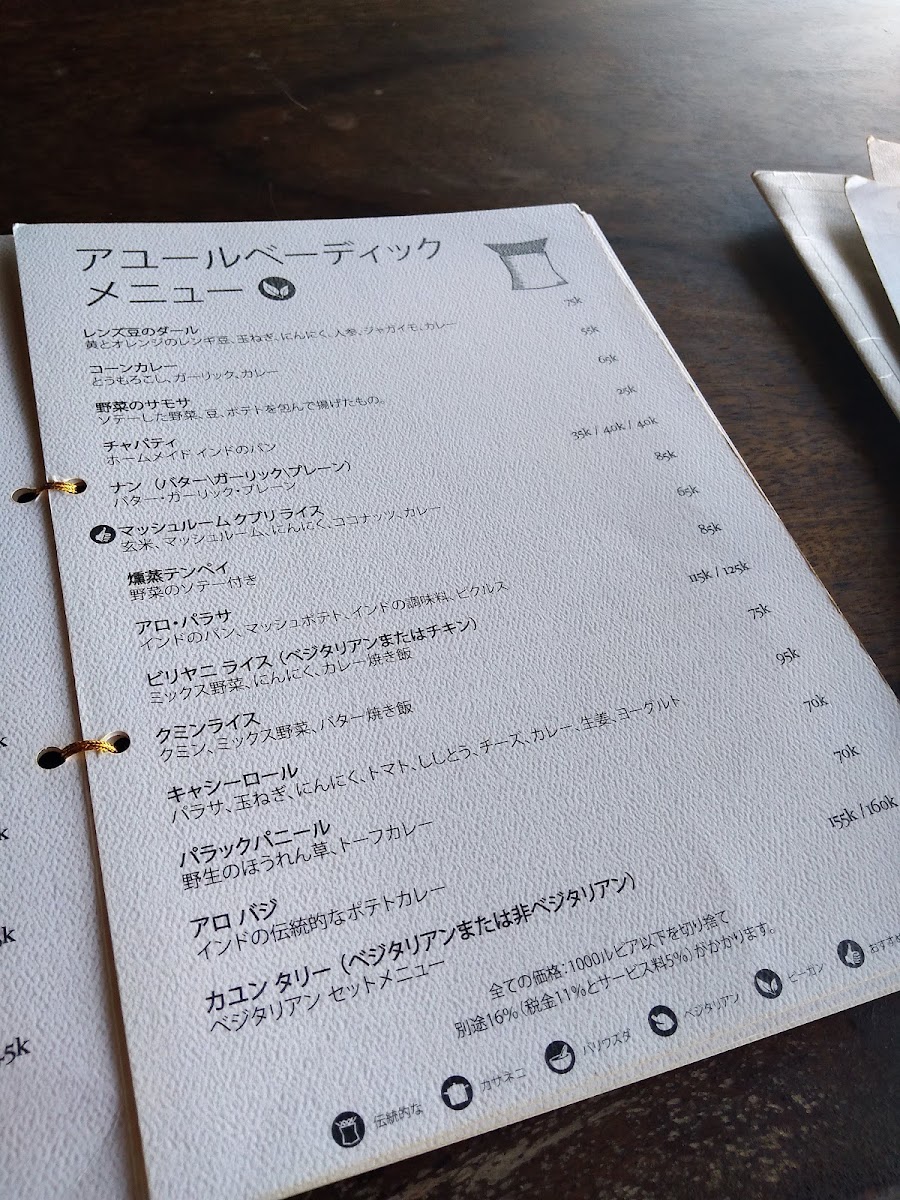 アユールベーディック
メニュー
レンズ豆のダール 75k
黄とオレンジのレンギ豆、玉ねぎ、にんにく、人参、ジャガイモ、カレー
コーンカレー 55k
とうもろこし、ガーリック、カレー
野菜のサモサ 65k
ソテーした野菜、豆、ポテトを包んで揚げたもの。
チャパティ 25k
ホームメイド インドのパン
ナン（バター\ガーリック\プレーン） 35k / 40k / 40k
バター・ガーリック・プレーン
マッシュルーム クブリ ライス 85k
玄米、マッシュルーム、にんにく、ココナッツ、カレー
燻蒸テンペイ 65k
野菜のソテー付き
アロ・パラサ 85k
インドのパン、マッシュポテト、インドの調味料、ピクルス
ビリヤニ ライス（ベジタリアンまたはチキン） 115k / 125k
ミックス野菜、にんにく、カレー焼き飯
クミンライス 75k
クミン、ミックス野菜、バター焼き飯
キャシーロール 95k
パラサ、玉ねぎ、にんにく、トマト、ししとう、チーズ、カレー、生姜、ヨーグルト
パラックパニール 70k
野生のほうれん草、トーフカレー
アロ バジ 70k
インドの伝統的なポテトカレー
カユン タリー（ベジタリアンまたは非ベジタリアン） 155k / 160k
ベジタリアン セットメニュー
全ての価格：1000ルピア以下を切り捨て
別途16%（税金11%とサービス料5%）がかかります。
伝統的な カサネコ バリウスダ ベジタリアン ビーガン おすすめ
k
k
5k